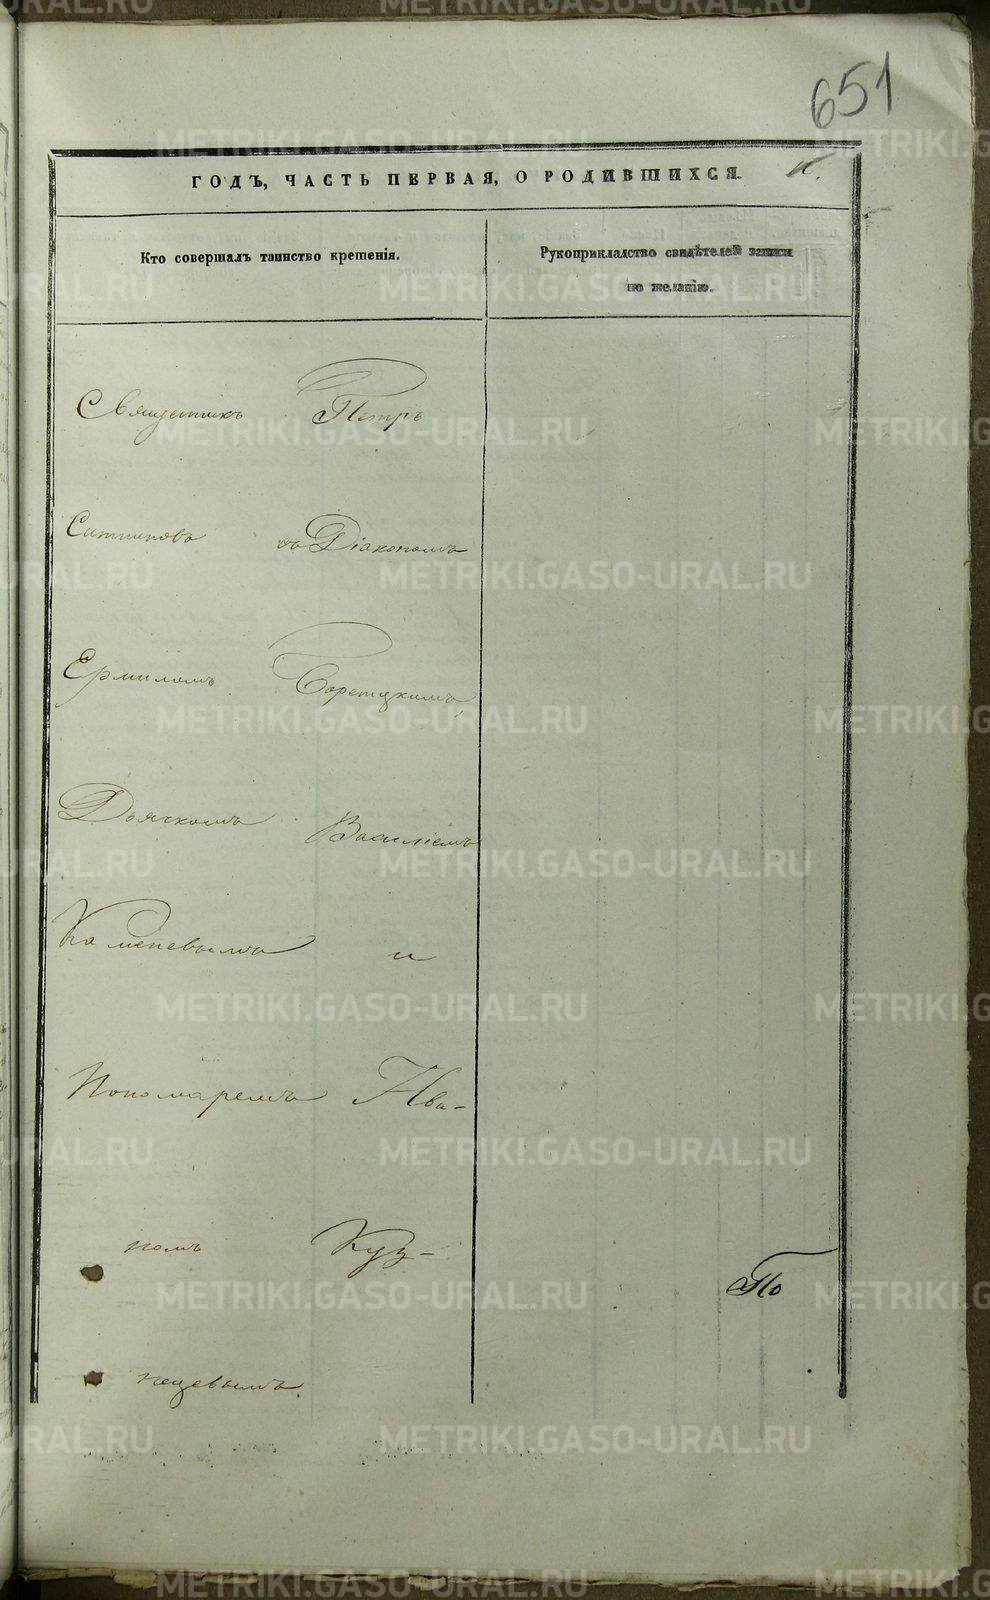 651
ГОДЪ, ЧАСТЬ ПЕРВАЯ, О РОДИВШИХСЯ.
Кто совершалъ таинство крещенія.
Рукоприкладство свидѣтелей записи
по желанію.
Священникъ Петръ
Ситниковъ съ Діакономъ
Ермиломъ Борецкимъ,
Дьячкомъ Василіемъ
Каменевымъ и
Пономаремъ Ива-
номъ Куз-
По
нецевымъ.
METRIKI.GASO-URAL.RU